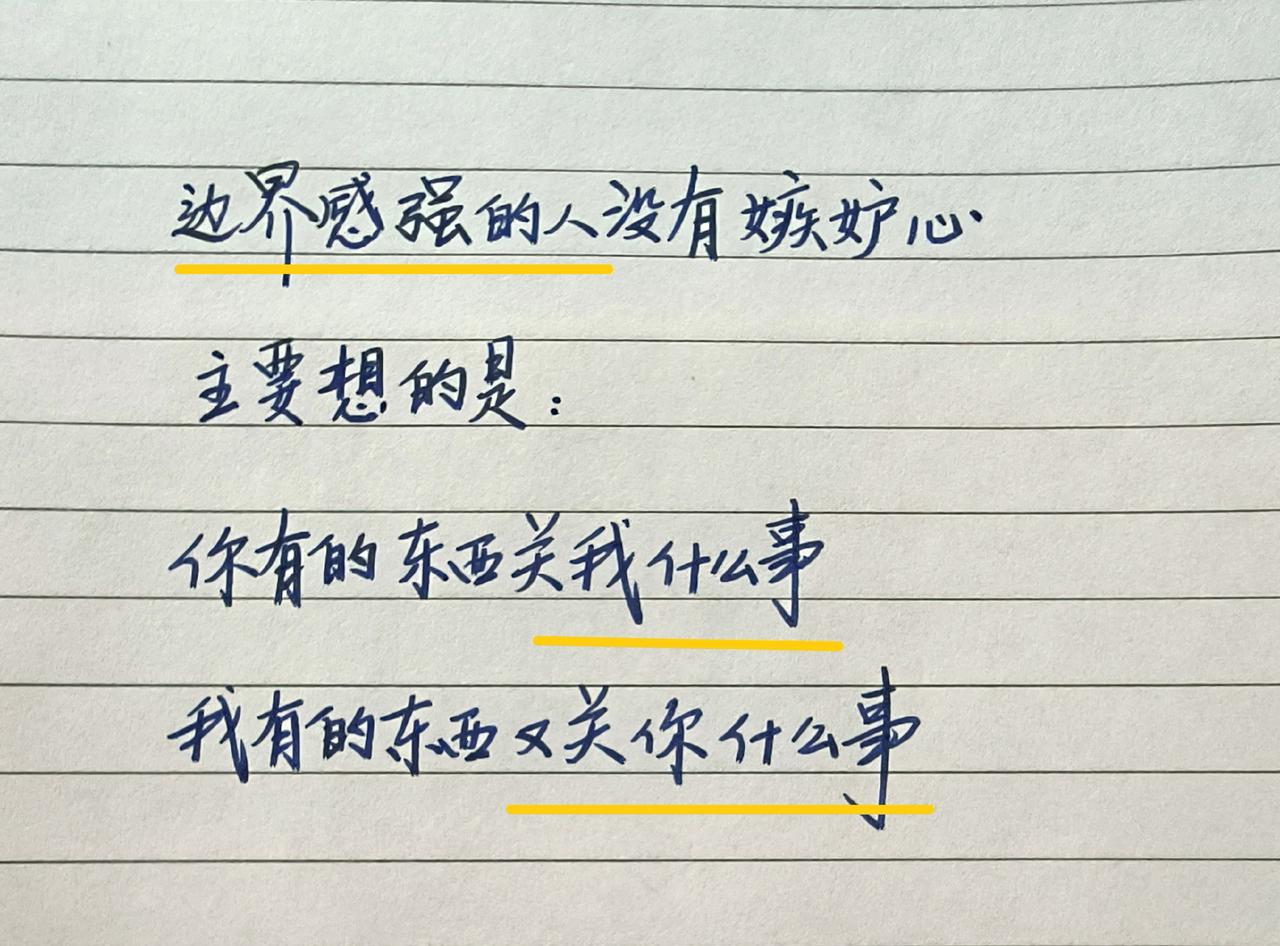 边界感强的人没有嫉妒心
主要想的是：
你有的东西关我什么事
我有的东西又关你什么事